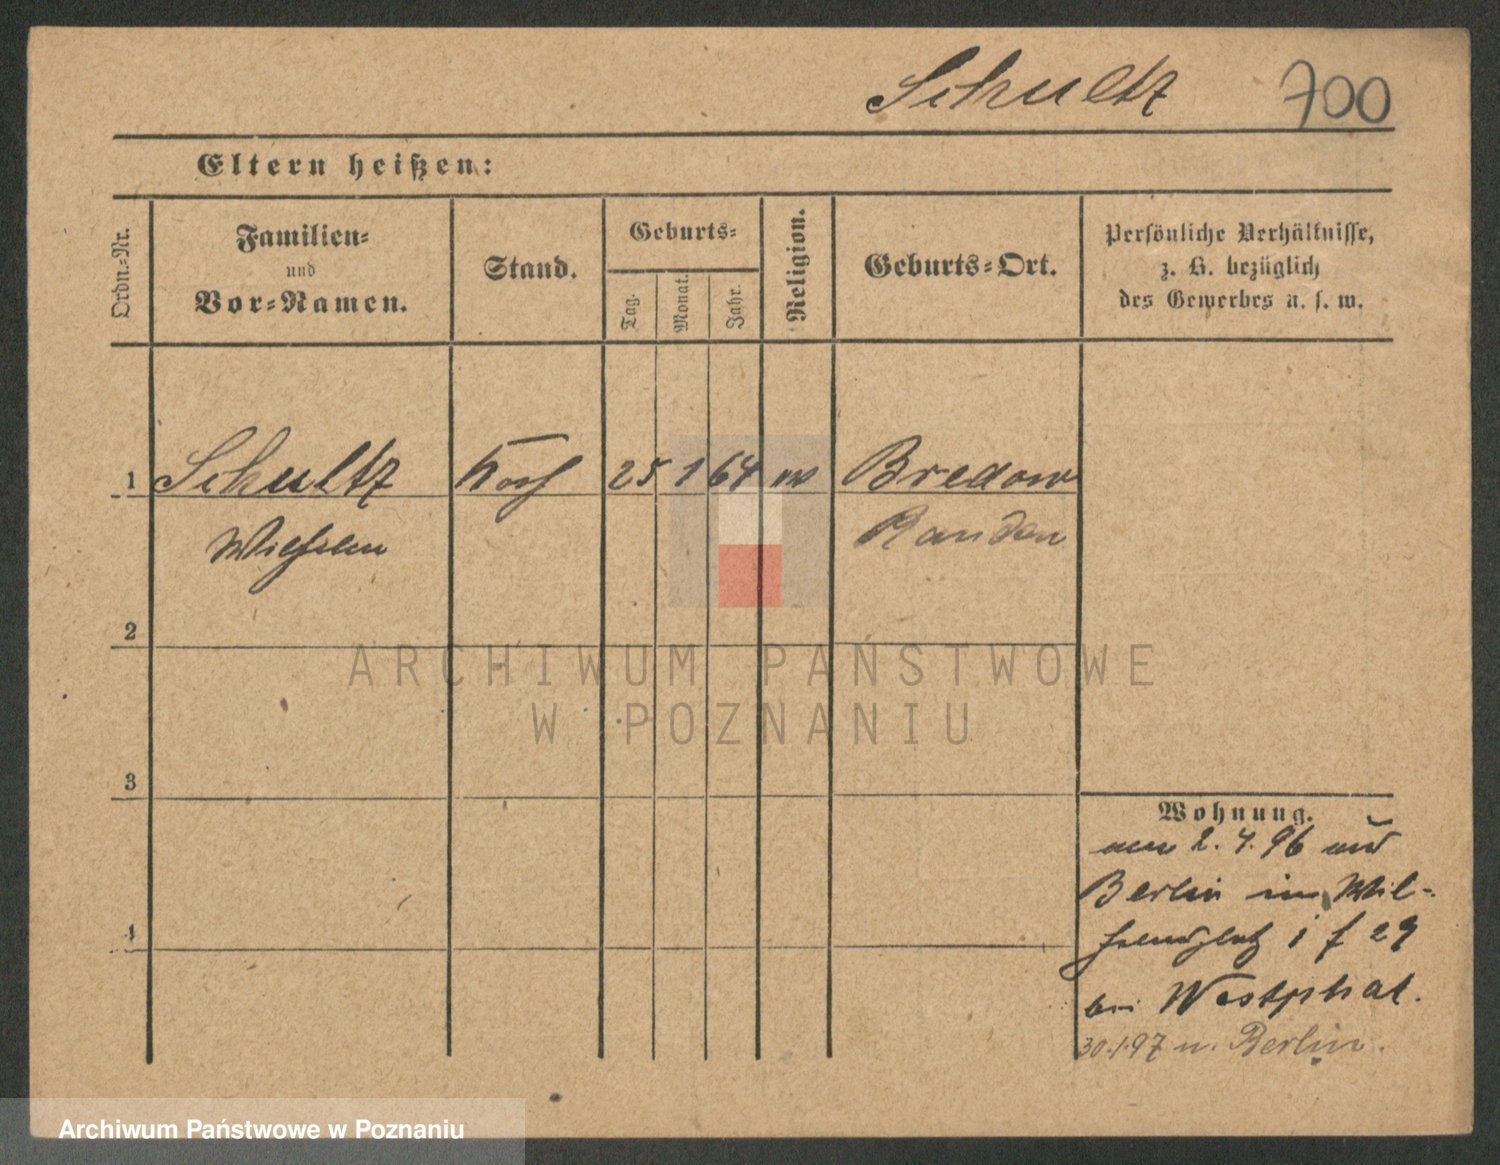 Schultz 700
Eltern heißen:
Ordn.-Nr.
Familien-
und
Vor-Namen.
Stand.
Geburts-
Tag.
Monat.
Jahr.
Religion.
Geburts-Ort.
Persönliche Verhältnisse,
z. B. bezüglich
des Gewerbes u. s. w.
1 Schultz Koch 25 1 64 Bredow
Wilhelm Randow
2
3
4
Wohnung.
2. 4. 96 aus
Berlin im Wil-
helmsplatz 29
bei Westphal.
30.1.97 n. Berlin.
ARCHIWUM PAŃSTWOWE
W POZNANIU
Archiwum Państwowe w Poznaniu